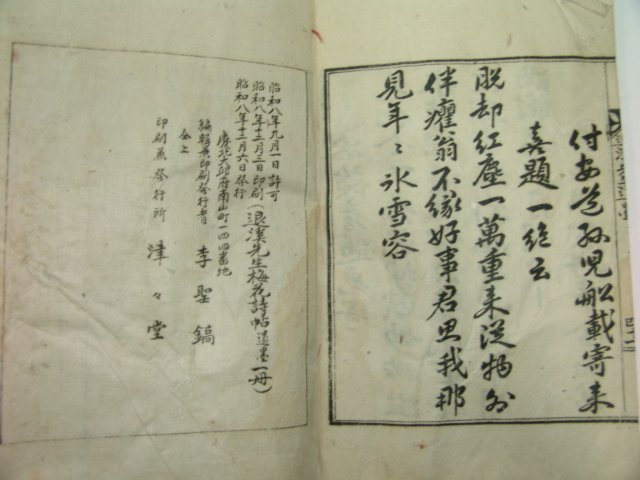 付安道孫兒船載寄来
喜題一絶云
脱却紅塵一萬重来従物外
伴癯翁不緣好事君思我那
見年〻氷雪容
昭和八年九月一日許可
昭和八年十二月三日印刷
昭和八年十二月六日発行
(退溪先生梅花詩帖遺墨一冊)
慶北大邱府南山町一四四番地
編輯兼印刷発行者 李聖鎬
仝上
印刷兼発行所 津々堂